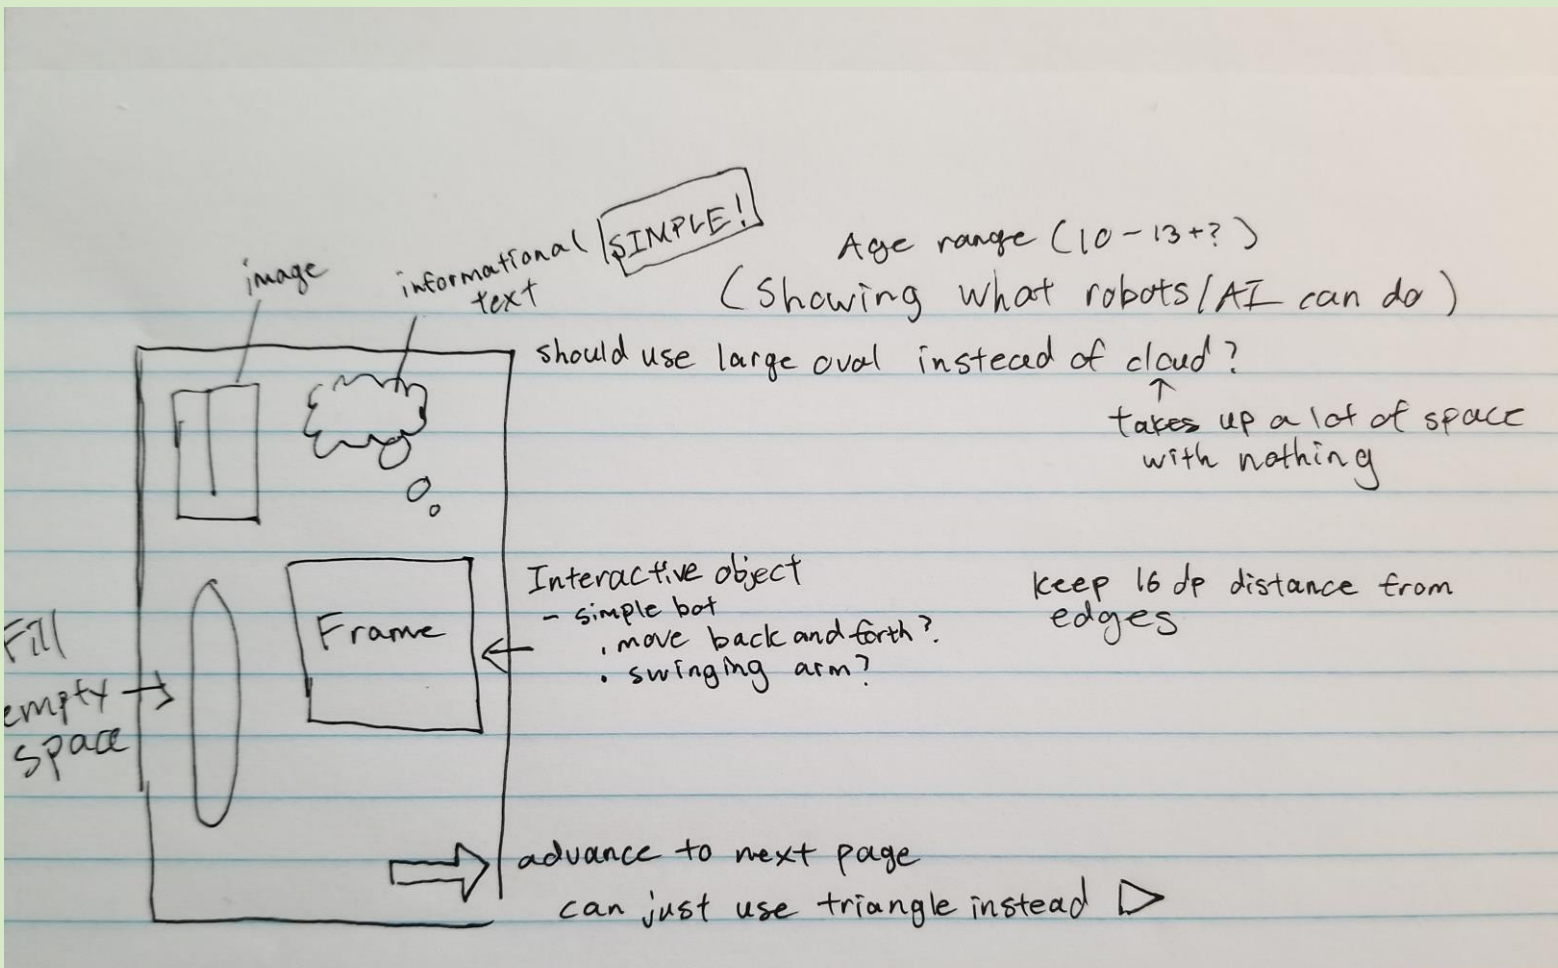 SIMPLE!
image
informational
text
Age range (10-13+?)
(Showing what robots/AI can do)
should use large oval instead of cloud?
↑
takes up a lot of space
with nothing
Interactive object
- simple bot
. move back and forth?
. swinging arm?
Frame
keep 16 dp distance from
edges
Fill
empty
space
advance to next page
can just use triangle instead ▷